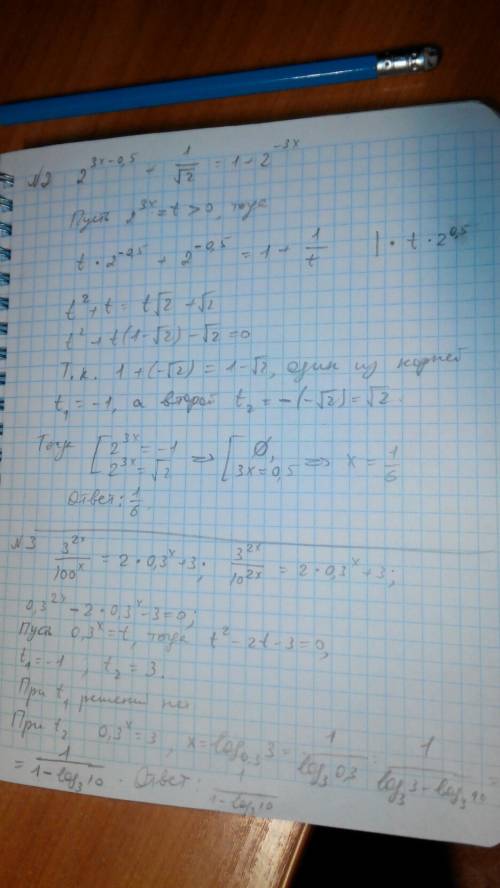 №2 2^{3x-0,5} + 1/√2 = 1 + 2^{-3x}
Пусть 2^{3x} = t > 0, тогда
t · 2^{-0,5} + 2^{-0,5} = 1 + 1/t | · t · 2^{0,5}
t² + t = t√2 + √2
t² + t(1-√2) - √2 = 0
Т.к. 1 + (-√2) = 1-√2, один из корней
t₁ = -1, а второй t₂ = -(-√2) = √2.
Тогда [2^{3x} = -1 2^{3x} = √2 ⇒ [∅, 3x = 0,5 ⇒ x = 1/6
Ответ: 1/6.
№3 3^{2x}/100^x = 2 · 0,3^x + 3; 3^{2x}/10^{2x} = 2 · 0,3^x + 3;
0,3^{2x} - 2 · 0,3^x - 3 = 0;
Пусть 0,3^x = t, тогда t² - 2t - 3 = 0,
t₁ = -1, t₂ = 3.
При t₁ решений нет
При t₂ 0,3^x = 3, x = log_{0,3} 3 = 1/log₃ 0,3 = 1/(log₃ 3 - log₃ 10) =
= 1/(1 - log₃ 10). Ответ: 1/(1 - log₃ 10)